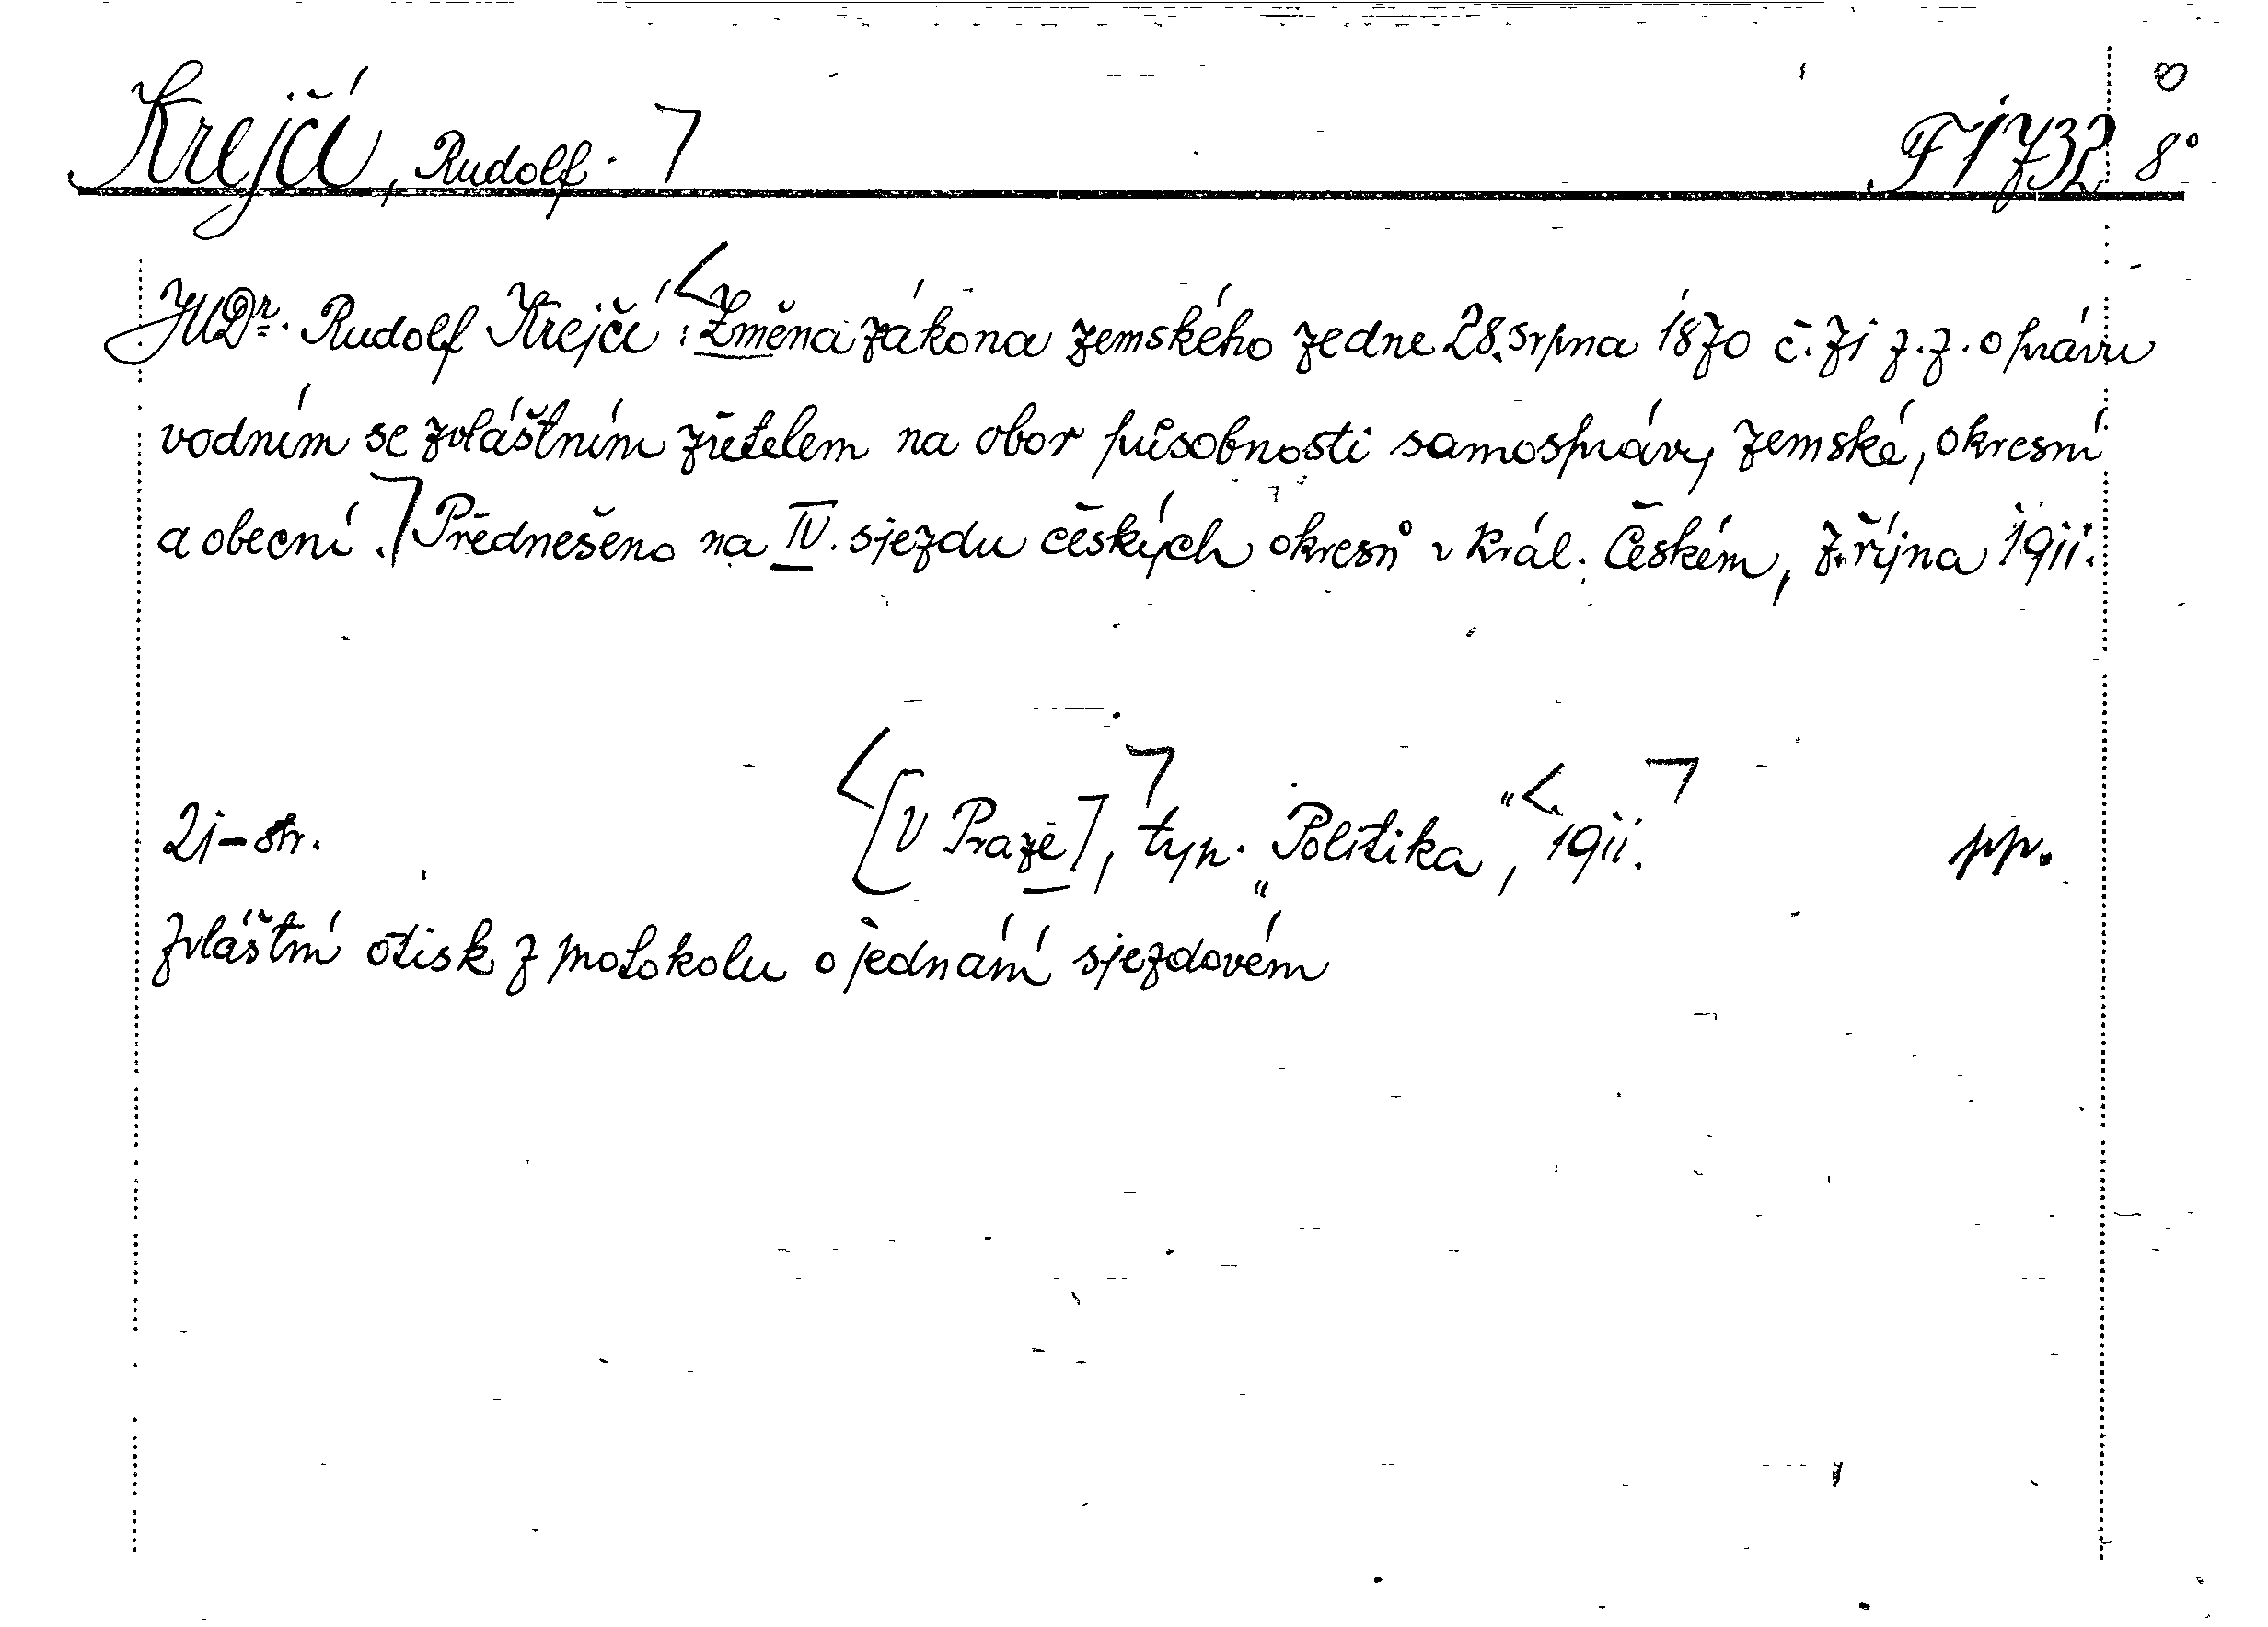 Krejčí, Rudolf. F 1732 8°
JUDr. Rudolf Krejčí: Změna zákona zemského ze dne 28. srpna 1870 č. 71 z. z. o právu
vodním se zvláštním zřetelem na obor působnosti samosprávy zemské, okresní
a obecní. Předneseno na IV. sjezdu českých okresů v král. Českém, 7. října 1911.
21 - str. [V Praze], typ. „Politika“, 1911. pp.
Zvláštní otisk z protokolu o jednání sjezdovém